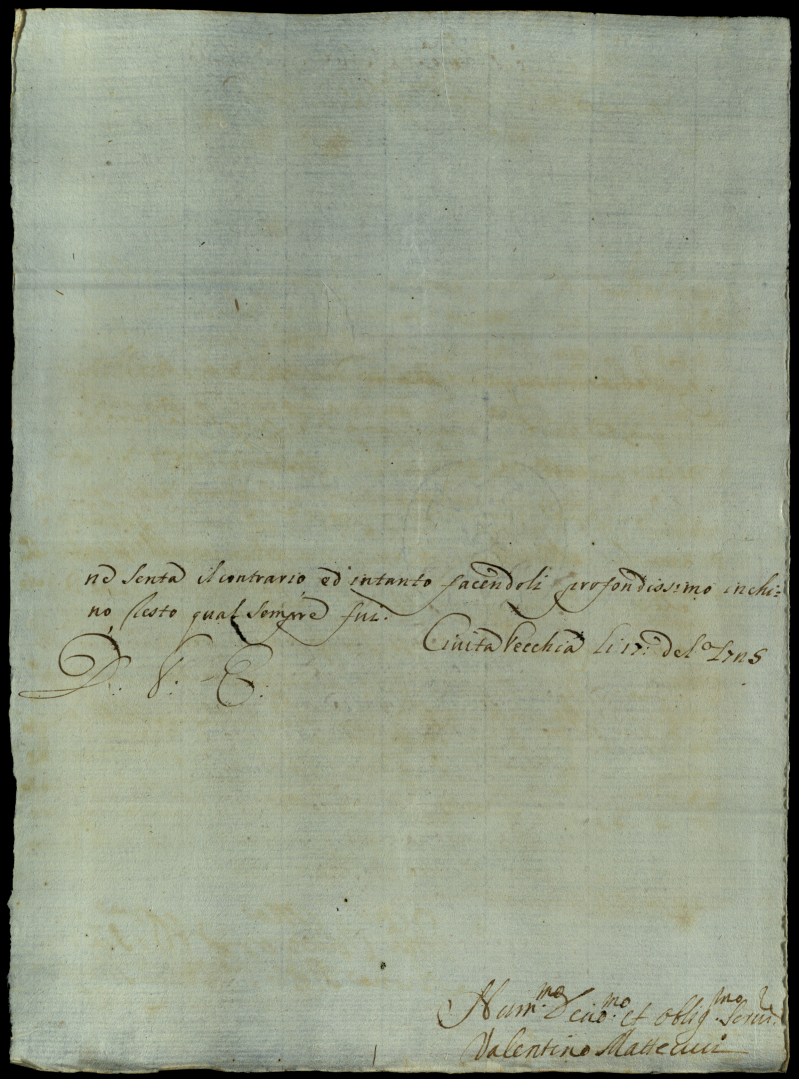 ne senta il contrario ed intanto facendoli profondissimo inchi:
no, resto qual sempre fui.
Civita Vecchia li 17:
D. V. E.
Hum.mo D et oblig.mo Serv.
Valentino Mattecucci